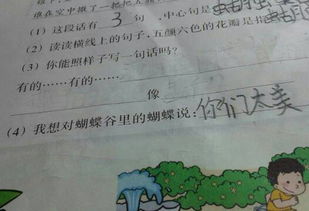 谁在空中撒了一把把五颜
(1) 这段话有 3 句,中心句是
(2) 读读横线上的句子,五颜六色的花瓣是指蝴蝶
(3) 你能照样子写一句话吗?
有的……有的……
像
(4) 我想对蝴蝶谷里的蝴蝶说:你们太美